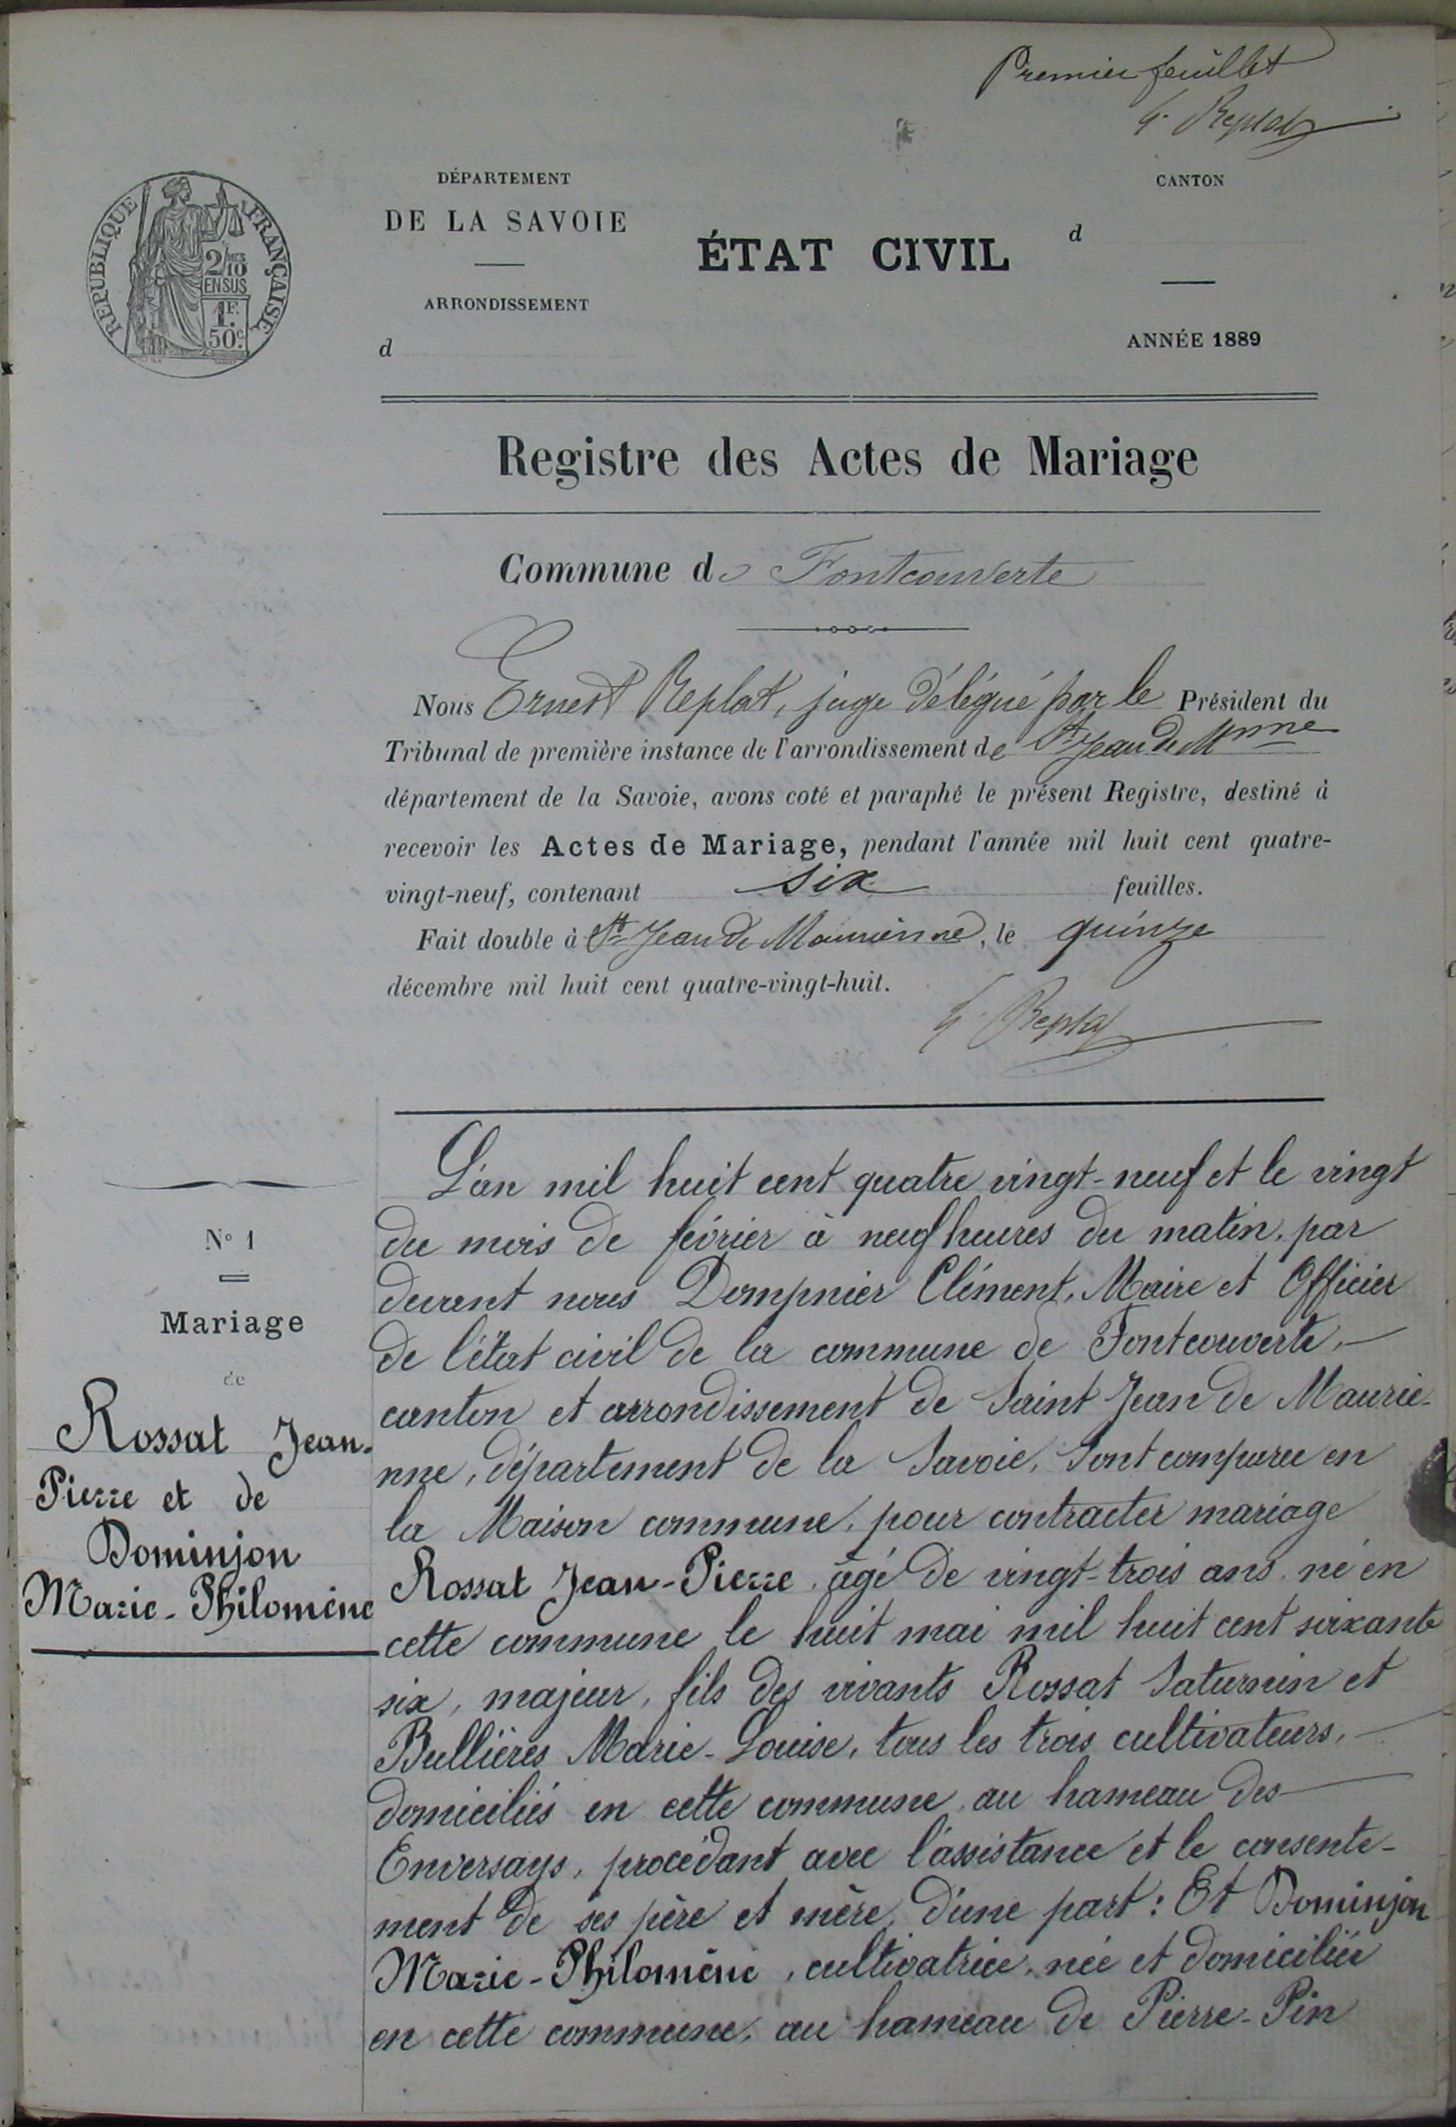 Premier feuillet
E. Replat
REPUBLIQUE FRANÇAISE
2/10 MES
EN SUS
1F.
50c.
DÉPARTEMENT
DE LA SAVOIE
ARRONDISSEMENT
d
ÉTAT CIVIL
CANTON
d
ANNÉE 1889
Registre des Actes de Mariage
Commune de Fontcouverte
Nous Ernest Replat, juge délégué par le Président du
Tribunal de première instance de l'arrondissement de St Jean de Mnne
département de la Savoie, avons coté et paraphé le présent Registre, destiné à
recevoir les Actes de Mariage, pendant l'année mil huit cent quatre-
vingt-neuf, contenant six feuilles.
Fait double à St Jean de Maurienne, le quinze
décembre mil huit cent quatre-vingt-huit.
E. Replat
N° 1
Mariage
de
Rossat Jean-
Pierre et de
Dominjon
Marie-Philomène
L'an mil huit cent quatre vingt-neuf et le vingt
du mois de février à neuf heures du matin, par
devant nous Dompnier Clément, Maire et Officier
de l'état civil de la commune de Fontcouverte,
canton et arrondissement de Saint Jean de Maurie-
nne, département de la Savoie, sont comparu en
la Maison commune, pour contracter mariage
Rossat Jean-Pierre, âgé de vingt-trois ans, né en
cette commune le huit mai mil huit cent soixante
six, majeur, fils des vivants Rossat Saturnin et
Bullières Marie-Louise, tous les trois cultivateurs,
domiciliés en cette commune, au hameau des
Enversays, procédant avec l'assistance et le consente-
ment de ses père et mère, d'une part: Et Dominjon
Marie-Philomène, cultivatrice, née et domiciliée
en cette commune, au hameau de Pierre-Pin